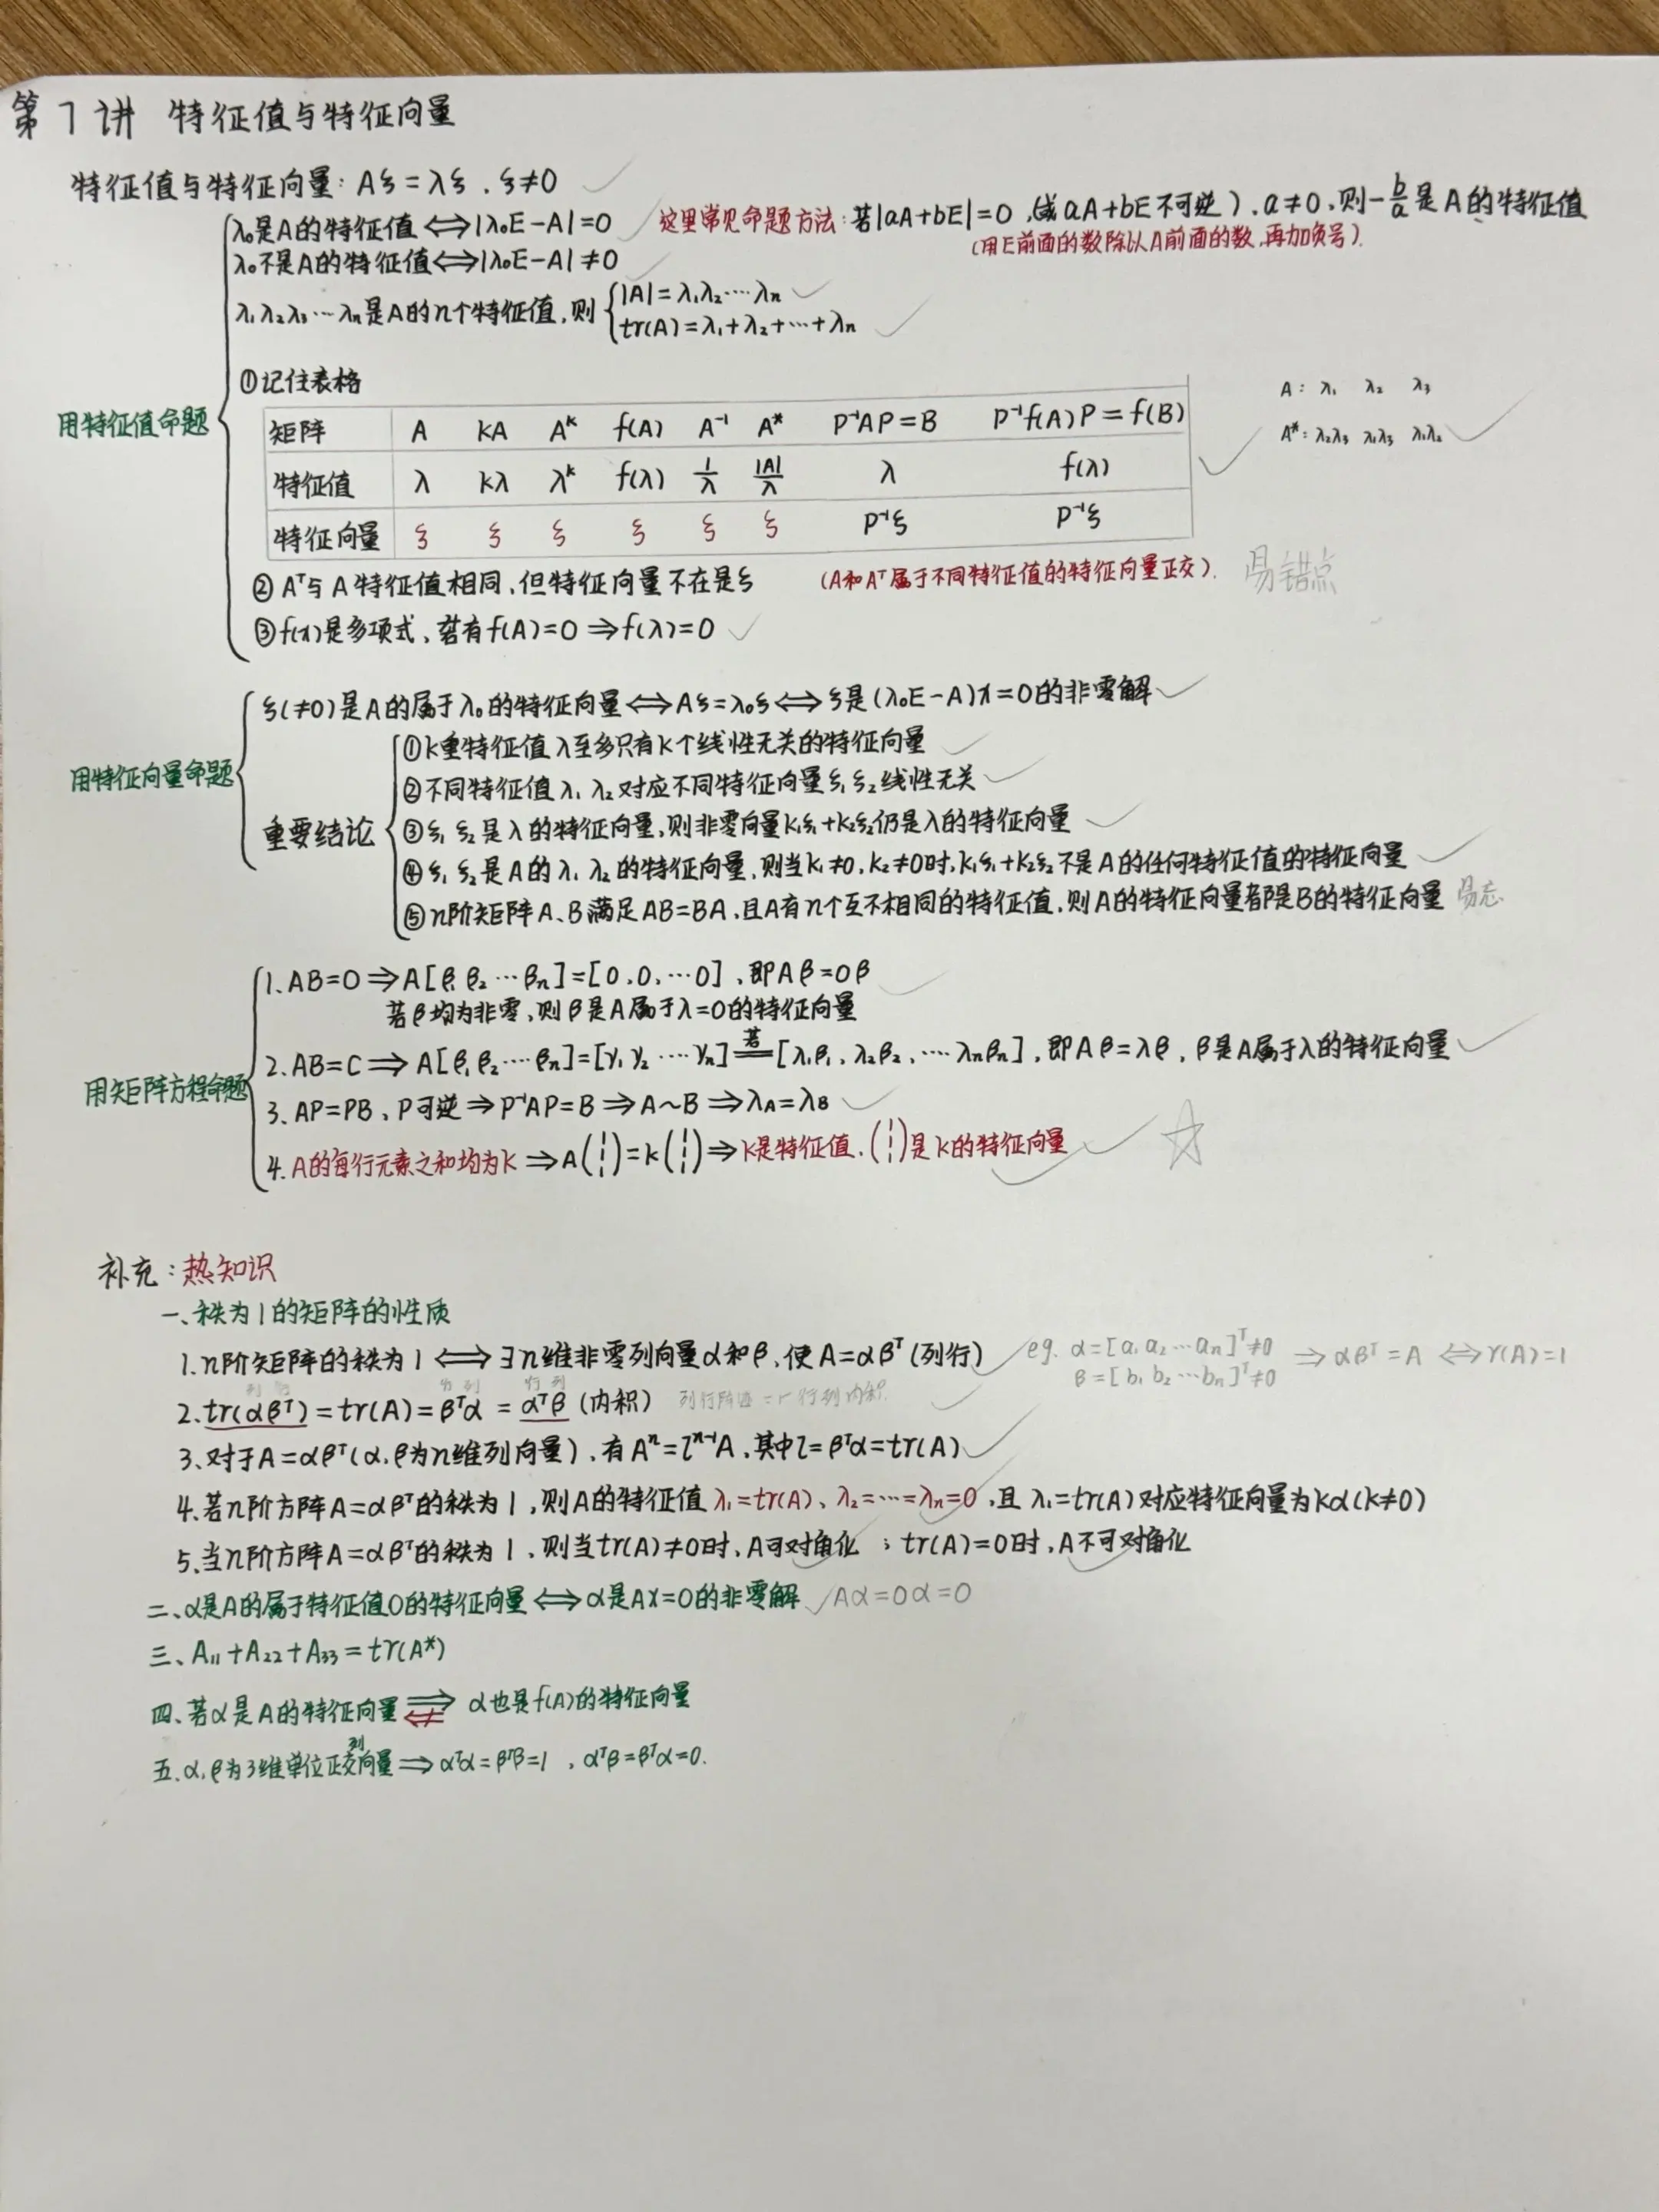 第7讲 特征值与特征向量
特征值与特征向量: Aξ=λξ, ξ≠0
用特征值命题
λ₀是A的特征值⟺|λ₀E-A|=0 这里常见命题方法: 若|aA+bE|=0,(或aA+bE不可逆), a≠0,则-b/a是A的特征值
(用E前面的数除以A前面的数,再加负号).
λ₀不是A的特征值⟺|λ₀E-A|≠0
λ₁λ₂λ₃…λₙ是A的n个特征值,则 { |A|=λ₁λ₂…λₙ
tr(A)=λ₁+λ₂+…+λₙ
①记住表格
矩阵 A kA Aᵏ f(A) A⁻¹ A* P⁻¹AP=B P⁻¹f(A)P=f(B)
特征值 λ kλ λᵏ f(λ) 1/λ |A|/λ λ f(λ)
特征向量 ξ ξ ξ ξ ξ ξ P⁻¹ξ P⁻¹ξ
A: λ₁ λ₂ λ₃
A*: λ₂λ₃ λ₁λ₃ λ₁λ₂
②Aᵀ与A特征值相同,但特征向量不在是ξ (A和Aᵀ属于不同特征值的特征向量正交). 易错点
③f(x)是多项式,若有f(A)=0⇒f(λ)=0
用特征向量命题
ξ(≠0)是A的属于λ₀的特征向量⟺Aξ=λ₀ξ⟺ξ是(λ₀E-A)x=0的非零解
重要结论
①k重特征值λ至多只有k个线性无关的特征向量
②不同特征值λ₁λ₂对应不同特征向量ξ₁ξ₂线性无关
③ξ₁ξ₂是λ的特征向量,则非零向量k₁ξ₁+k₂ξ₂仍是λ的特征向量
④ξ₁ξ₂是A的λ₁λ₂的特征向量,则当k₁≠0,k₂≠0时,k₁ξ₁+k₂ξ₂不是A的任何特征值的特征向量
⑤n阶矩阵A、B满足AB=BA,且A有n个互不相同的特征值,则A的特征向量都是B的特征向量 易忘
用矩阵方程命题
1.AB=0⇒A[β₁β₂…βₙ]=[0,0,…0],即Aβ=0β
若β均为非零,则β是A属于λ=0的特征向量
2.AB=C⇒A[β₁β₂…βₙ]=[γ₁γ₂…γₙ]若=[λ₁β₁,λ₂β₂,…λₙβₙ],即Aβ=λβ,β是A属于λ的特征向量
3.AP=PB,P可逆⇒P⁻¹AP=B⇒A~B⇒λA=λB
4.A的每行元素之和均为k⇒A(1⋮1)=k(1⋮1)⇒k是特征值,(1⋮1)是k的特征向量
补充:热知识
一、秩为1的矩阵的性质
1.n阶矩阵的秩为1⟺∃n维非零列向量α和β,使A=αβᵀ(列行) eg. α=[a₁a₂…aₙ]ᵀ≠0
β=[b₁b₂…bₙ]ᵀ≠0 ⇒αβᵀ=A⟺r(A)=1
列行 行列 行列
2.tr(αβᵀ)=tr(A)=βᵀα=αᵀβ(内积)
3.对于A=αβᵀ(α,β为n维列向量),有Aⁿ=lⁿ⁻¹A,其中l=βᵀα=tr(A)
4.若n阶方阵A=αβᵀ的秩为1,则A的特征值λ₁=tr(A)、λ₂=…=λₙ=0,且λ₁=tr(A)对应特征向量为kα(k≠0)
5.当n阶方阵A=αβᵀ的秩为1,则当tr(A)≠0时,A可对角化;tr(A)=0时,A不可对角化
二、α是A的属于特征值0的特征向量⟺α是Ax=0的非零解 Aα=0α=0
三、A₁₁+A₂₂+A₃₃=tr(A*)
四、若α是A的特征向量⇒⇍α也是f(A)的特征向量
五.α,β为3维单位正交列向量⇒αᵀα=βᵀβ=1,αᵀβ=βᵀα=0.